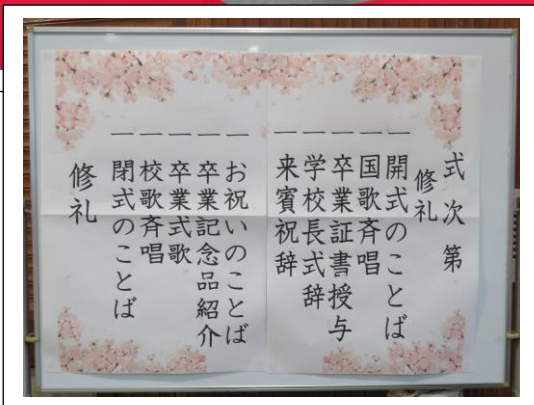 式次第
修礼
一 開式のことば
一 国歌斉唱
一 卒業証書授与
一 学校長式辞
一 来賓祝辞
一 お祝いのことば
一 卒業記念品紹介
一 卒業式歌
一 校歌斉唱
一 閉式のことば
修礼